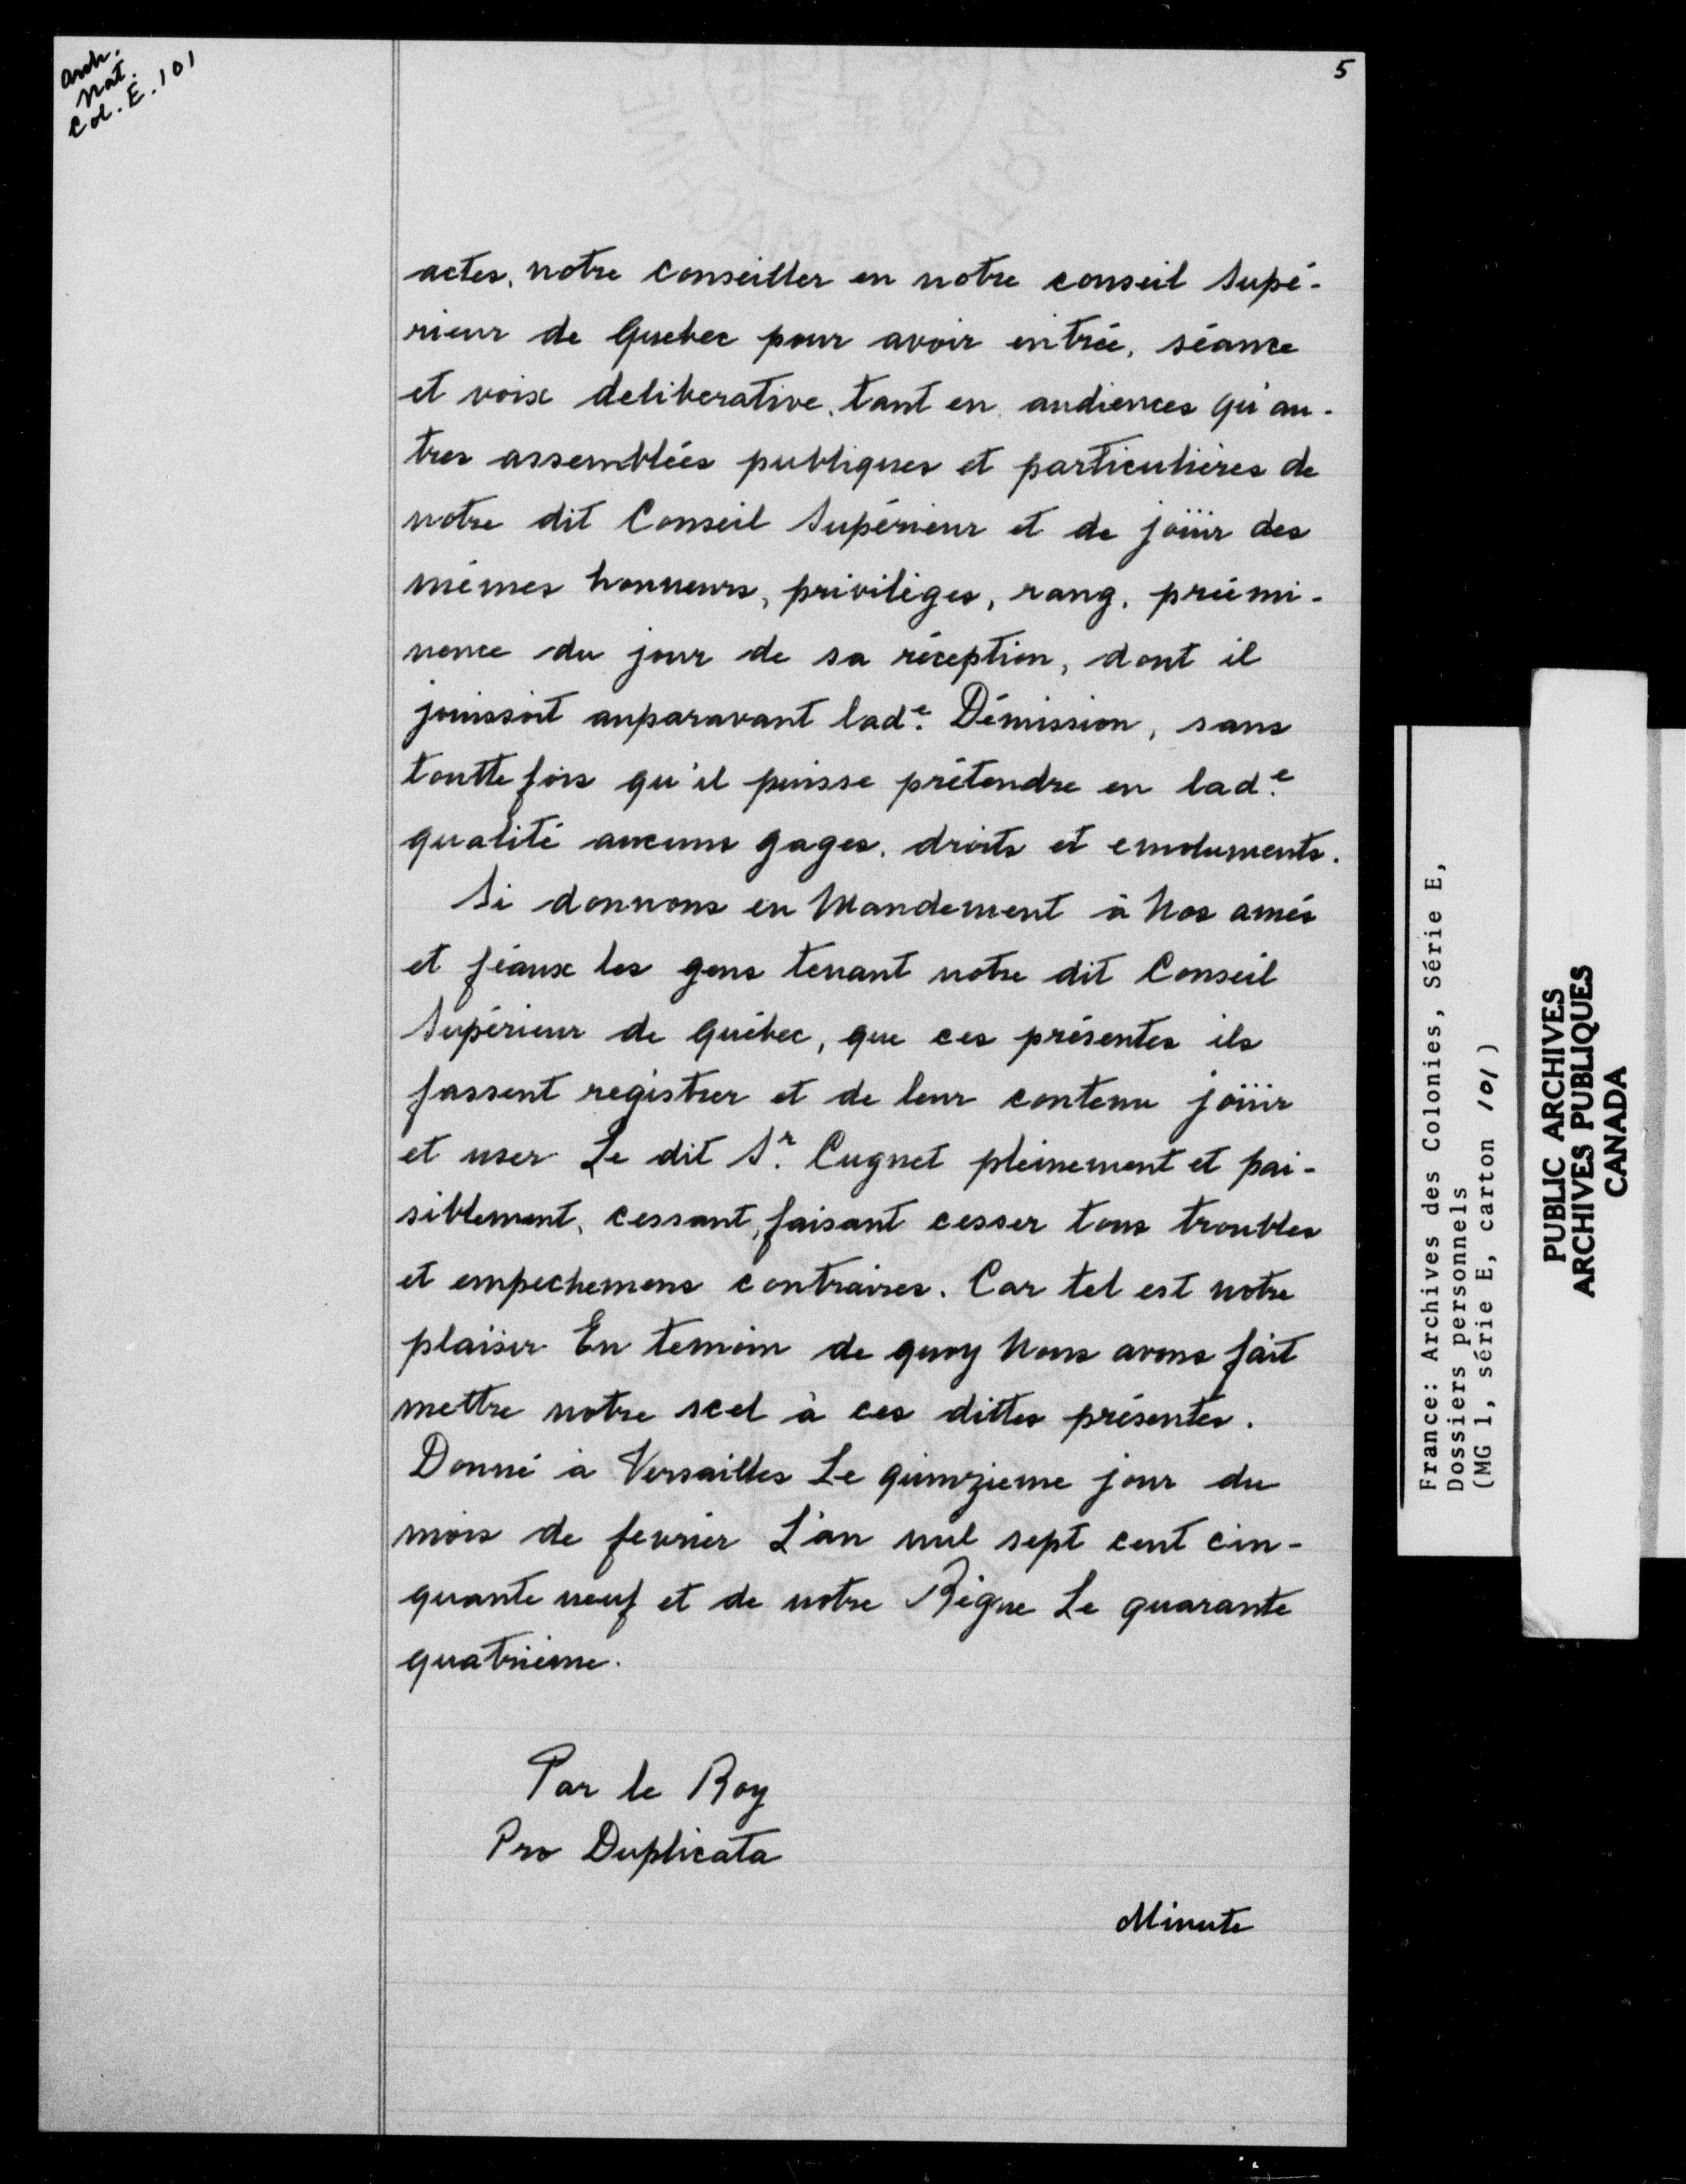 Arch.
Nat.
Col. E. 101
5
actes, notre conseiller en notre conseil supé-
rieur de Quebec pour avoir entrée, séance
et voix deliberative, tant en audiences qu'au-
tres assemblées publiques et particulières de
notre dit Conseil Supérieur et de joüir des
mêmes honneurs, privilèges, rang, préémi-
nence du jour de sa réception, dont il
jouissoit auparavant lad.e Démission, sans
toutte fois qu'il puisse prétendre en lad.e
qualité aucuns gages, droits et emoluments.
Si donnons en Mandement à Nos amés
et féaux les gens tenant notre dit Conseil
Supérieur de Québec, que ces présentes ils
fassent registrer et de leur contenu joüir
et user Le dit S.r Cugnet pleinement et pai-
siblement, cessant, faisant cesser tous troubles
et empechemens contraires. Car tel est notre
plaisir En temoin de quoy Nous avons fait
mettre notre scel à ces dittes présentes.
Donné à Versailles Le quinzieme jour du
mois de fevrier L'an mil sept cent cin-
quante neuf et de notre Règne Le quarante
quatrième.
Par le Roy
Pro Duplicata
Minute
France: Archives des Colonies, Série E,
Dossiers personnels
(MG 1, série E, carton 101)
PUBLIC ARCHIVES
ARCHIVES PUBLIQUES
CANADA